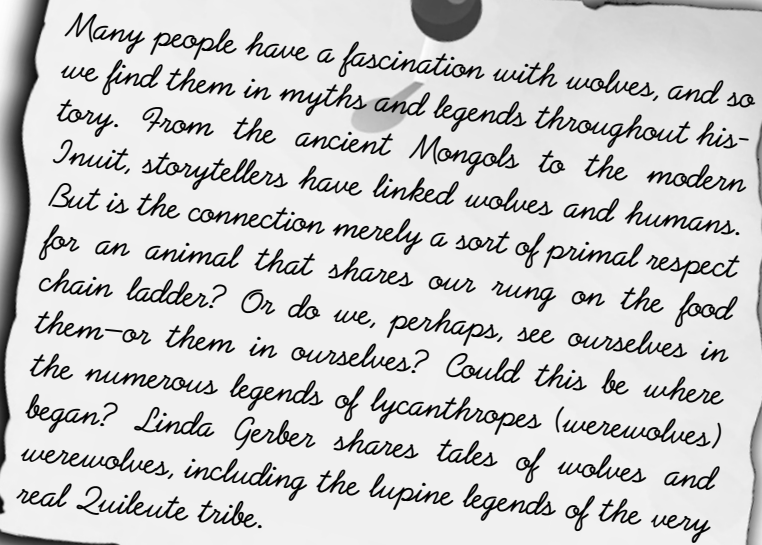 Many people have a fascination with wolves, and so
we find them in myths and legends throughout his-
tory. From the ancient Mongols to the modern
Inuit, storytellers have linked wolves and humans.
But is the connection merely a sort of primal respect
for an animal that shares our rung on the food
chain ladder? Or do we, perhaps, see ourselves in
them—or them in ourselves? Could this be where
the numerous legends of lycanthropes (werewolves)
began? Linda Gerber shares tales of wolves and
werewolves, including the lupine legends of the very
real Quileute tribe.